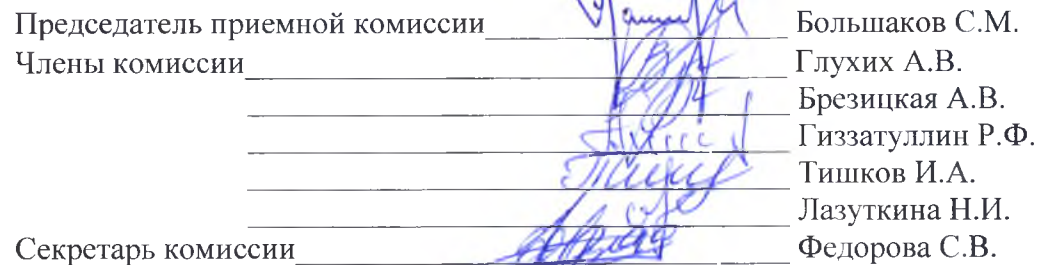 Председатель приемной комиссии Большаков С.М.
Члены комиссии Глухих А.В.
Брезицкая А.В.
Гиззатуллин Р.Ф.
Тишков И.А.
Лазуткина Н.И.
Секретарь комиссии Федорова С.В.